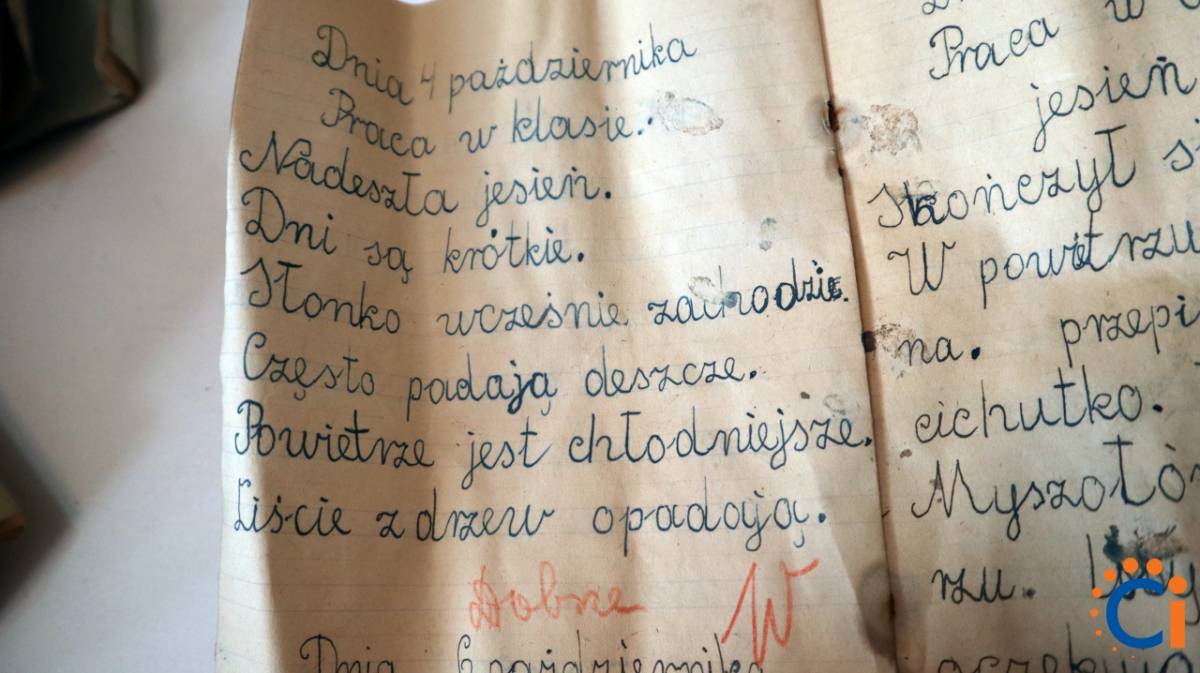 Dnia 4 października
Praca w klasie.
Nadeszła jesień.
Dni są krótkie.
Słonko wcześnie zachodzie.
Często padają deszcze.
Powietrze jest chłodniejsze.
Liście z drzew opadają.
Dobrze W
Dnia 6 października
Praca w
jesień
Skończył
W powietrzu
na. przepi
cichutko.
Myszołó
rzu.
Ci